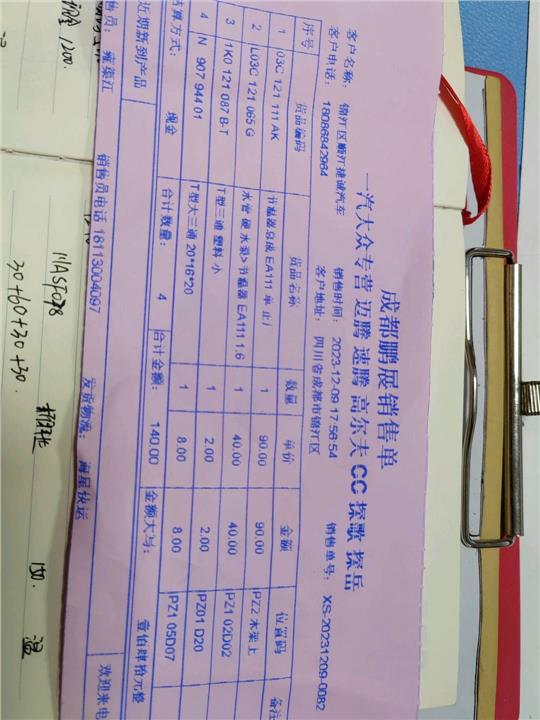 成都鹏展销售单
一汽大众专营 迈腾 速腾 高尔夫 CC 探歌 探岳
客户名称: 锦江区顺江捷诚汽车 销售时间: 2023-12-09 17:56:54 销售单号: XS-20231209-0082
客户电话: 18086842964 客户地址: 四川省成都市锦江区
序号 货品编码 货品名称 数量 单价 金额 位置码 备注
1 03C 121 111 AK 节温器总成 EA111 单 止/ 1 90.00 90.00 PZ2 木架上
2 L03C 121 065 G 水管 硬 水泵>节温器 EA111 1.6 1 40.00 40.00 PZ1 02D02
3 1K0 121 087 B-T T型三通 塑料 小 1 2.00 2.00 PZ01 D20
4 N 907 944 01 T型大三通 20*16*20 1 8.00 8.00 PZ1 05D07
结算方式: 现金 合计数量: 4 合计金额: 140.00 金额大写: 壹佰肆拾元整
近期新到产品
售员: 雍臻江 销售员电话 18113004097 发货物流: 海星快运 欢迎来电
1200.
30+60+30+30.
150.